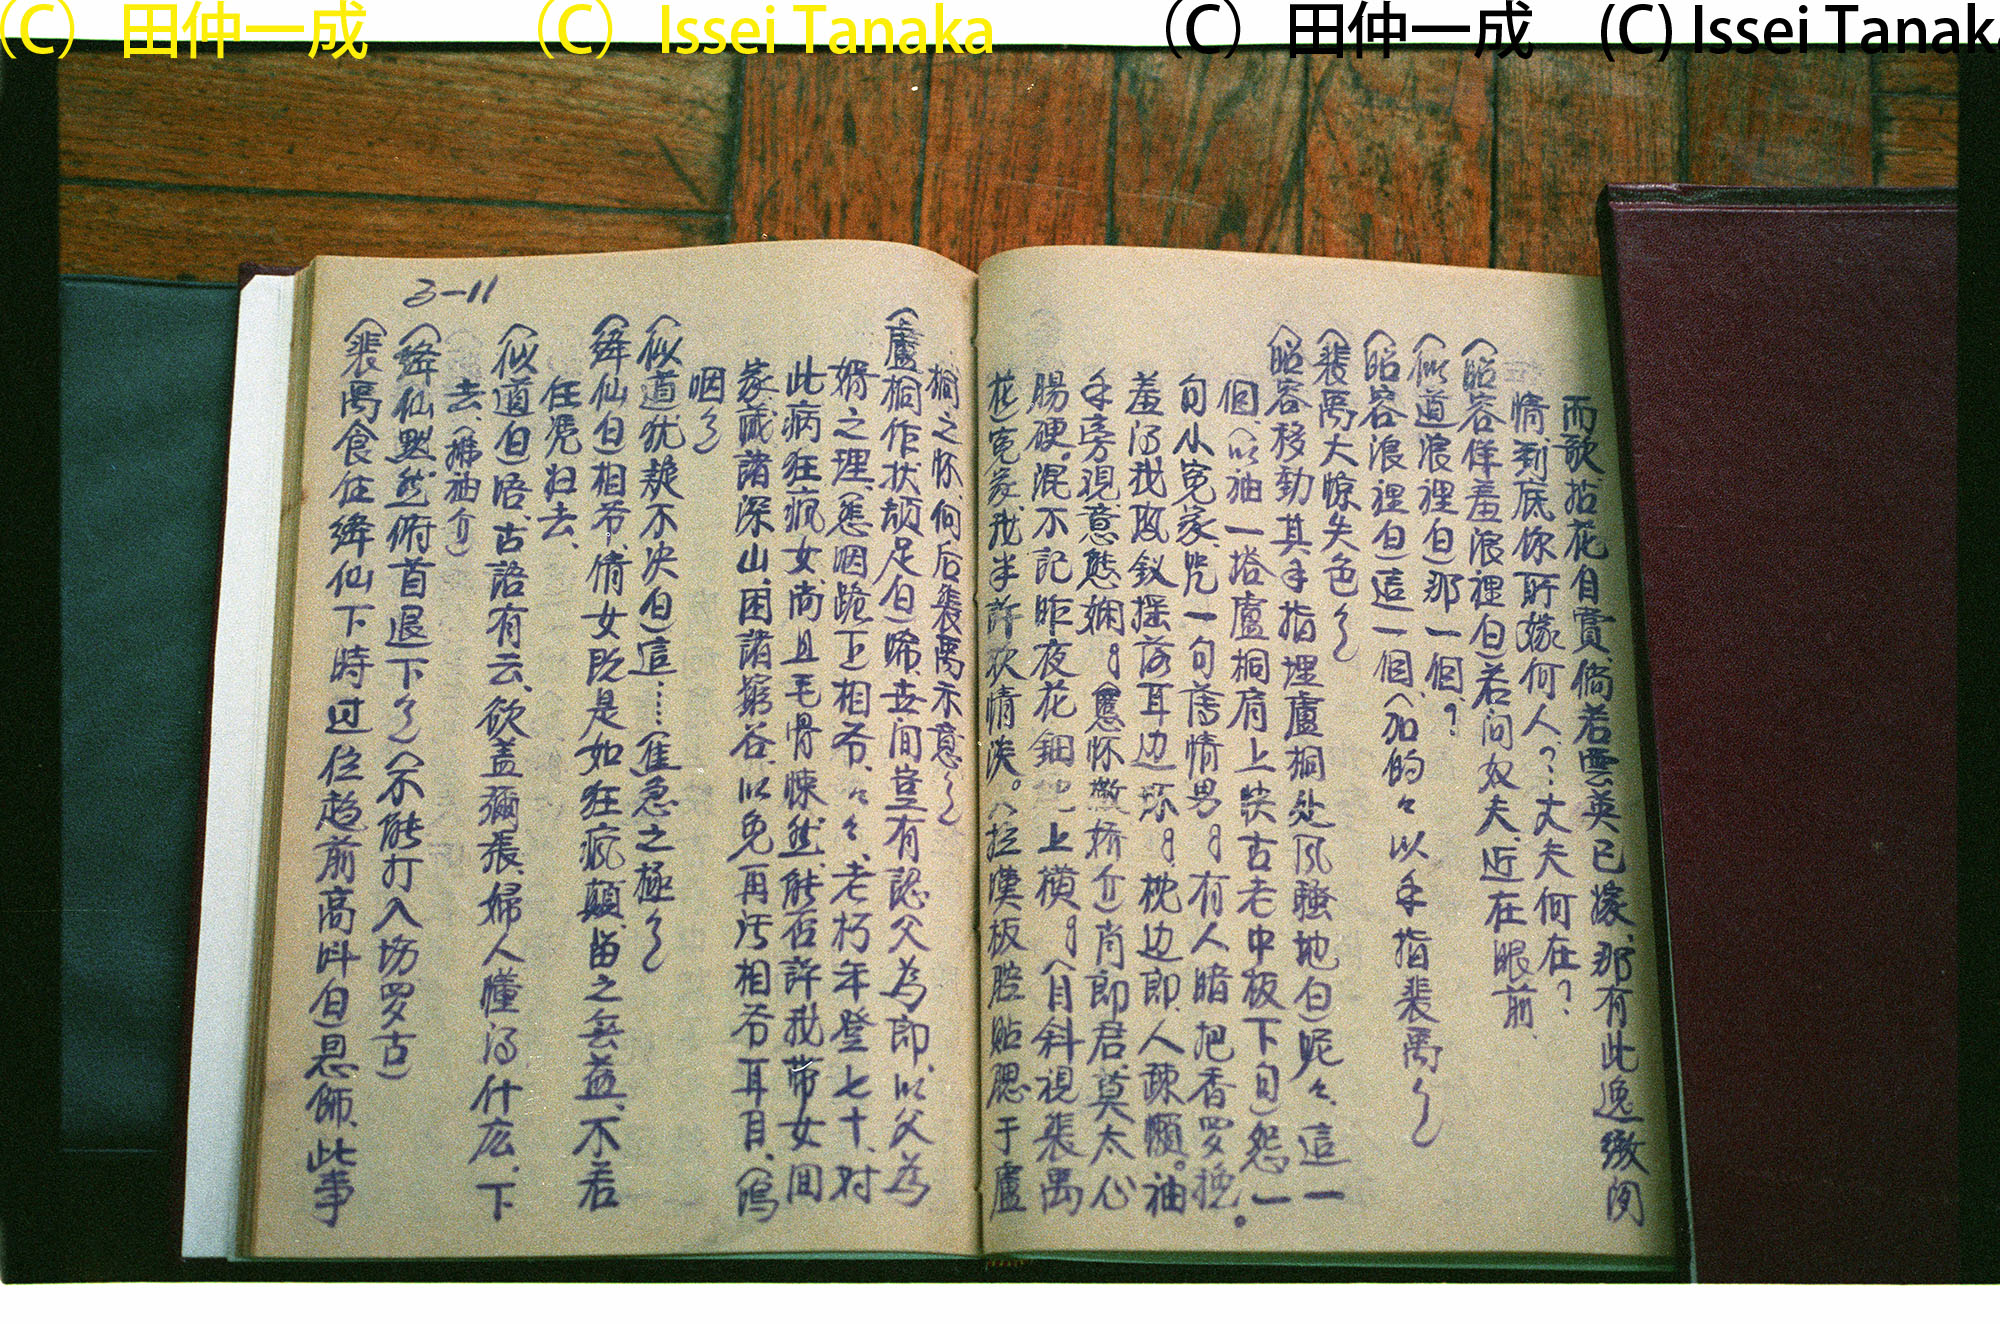 (C) 田仲一成 (C) Issei Tanaka (C) 田仲一成 (C) Issei Tanaka
而歌、拈花自賞、倘若雲英已嫁、那有此逸緻閑
情、到底你所嫁何人？：丈夫何在？
（昭容佯羞浪裡白）若问奴夫、近在眼前、
（似道浪裡白）那一個？
（昭容浪裡白）這一個、（加的々以手指裴禹
（裴禹大惊失色
（昭容移動其手指埋盧桐处风騷地白）呢々、這一
個、（以袖一搭盧桐肩上快古老中板下句）怨一
句小冤家、咒一句舊情男。有人暗把香罗挽。
羞得我玫釵搖落耳边环。枕边郎、人疎懶。袖
手旁現意態嫻。（悪怀撒嬌介）肖郎君、莫太心
腸硬。混不記昨夜花鈿 上橫。（目斜視裴禹
花）冤家、我半許欢情淡。（拉漢板腔貼腮于盧
桐之怀、向后裴禹示意
（盧桐作状頓足白）唏、世间豈有認父為郎、以父為
婿之理、（悲咽跪下）相爷、々々、老朽年登七十、対
此病狂疯女、尚且毛骨悚然、能否許我帶女回
家、藏諸深山、困諸窮谷、以免再污相爷耳目、（嗚
咽
（似道犹疑不决白）這……（焦急之極
（絳仙白）相爷、倩女既是如狂疯顛、留之無益、不若
任凭归去、
（似道白）唔、古語有云、欲盖彌張、婦人懂得什庅、下
去、（拂袖介）
（絳仙黙然俯首退下（不能打入場罗古）
（裴禹食住絳仙下時过位趋前高叫白）恩師、此事
3-11